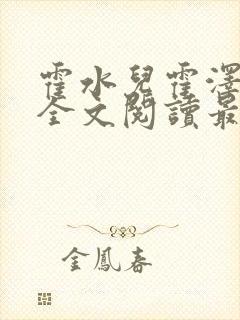 霍水兒霍澤
全文閱讀最
金鳳春